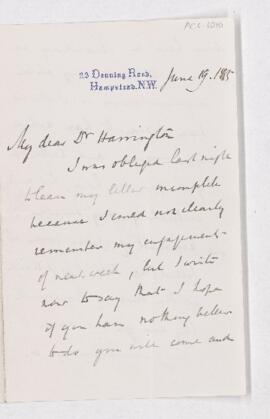 23 Denning Road,
Hampstead. N.W.
June 19. 1885
My dear Dr Harrington
I was obliged last night
to leave my letter incomplete
because I could not clearly
remember my engagements
of next week, but I write
now to say that I hope
if you have nothing better
to do you will come and